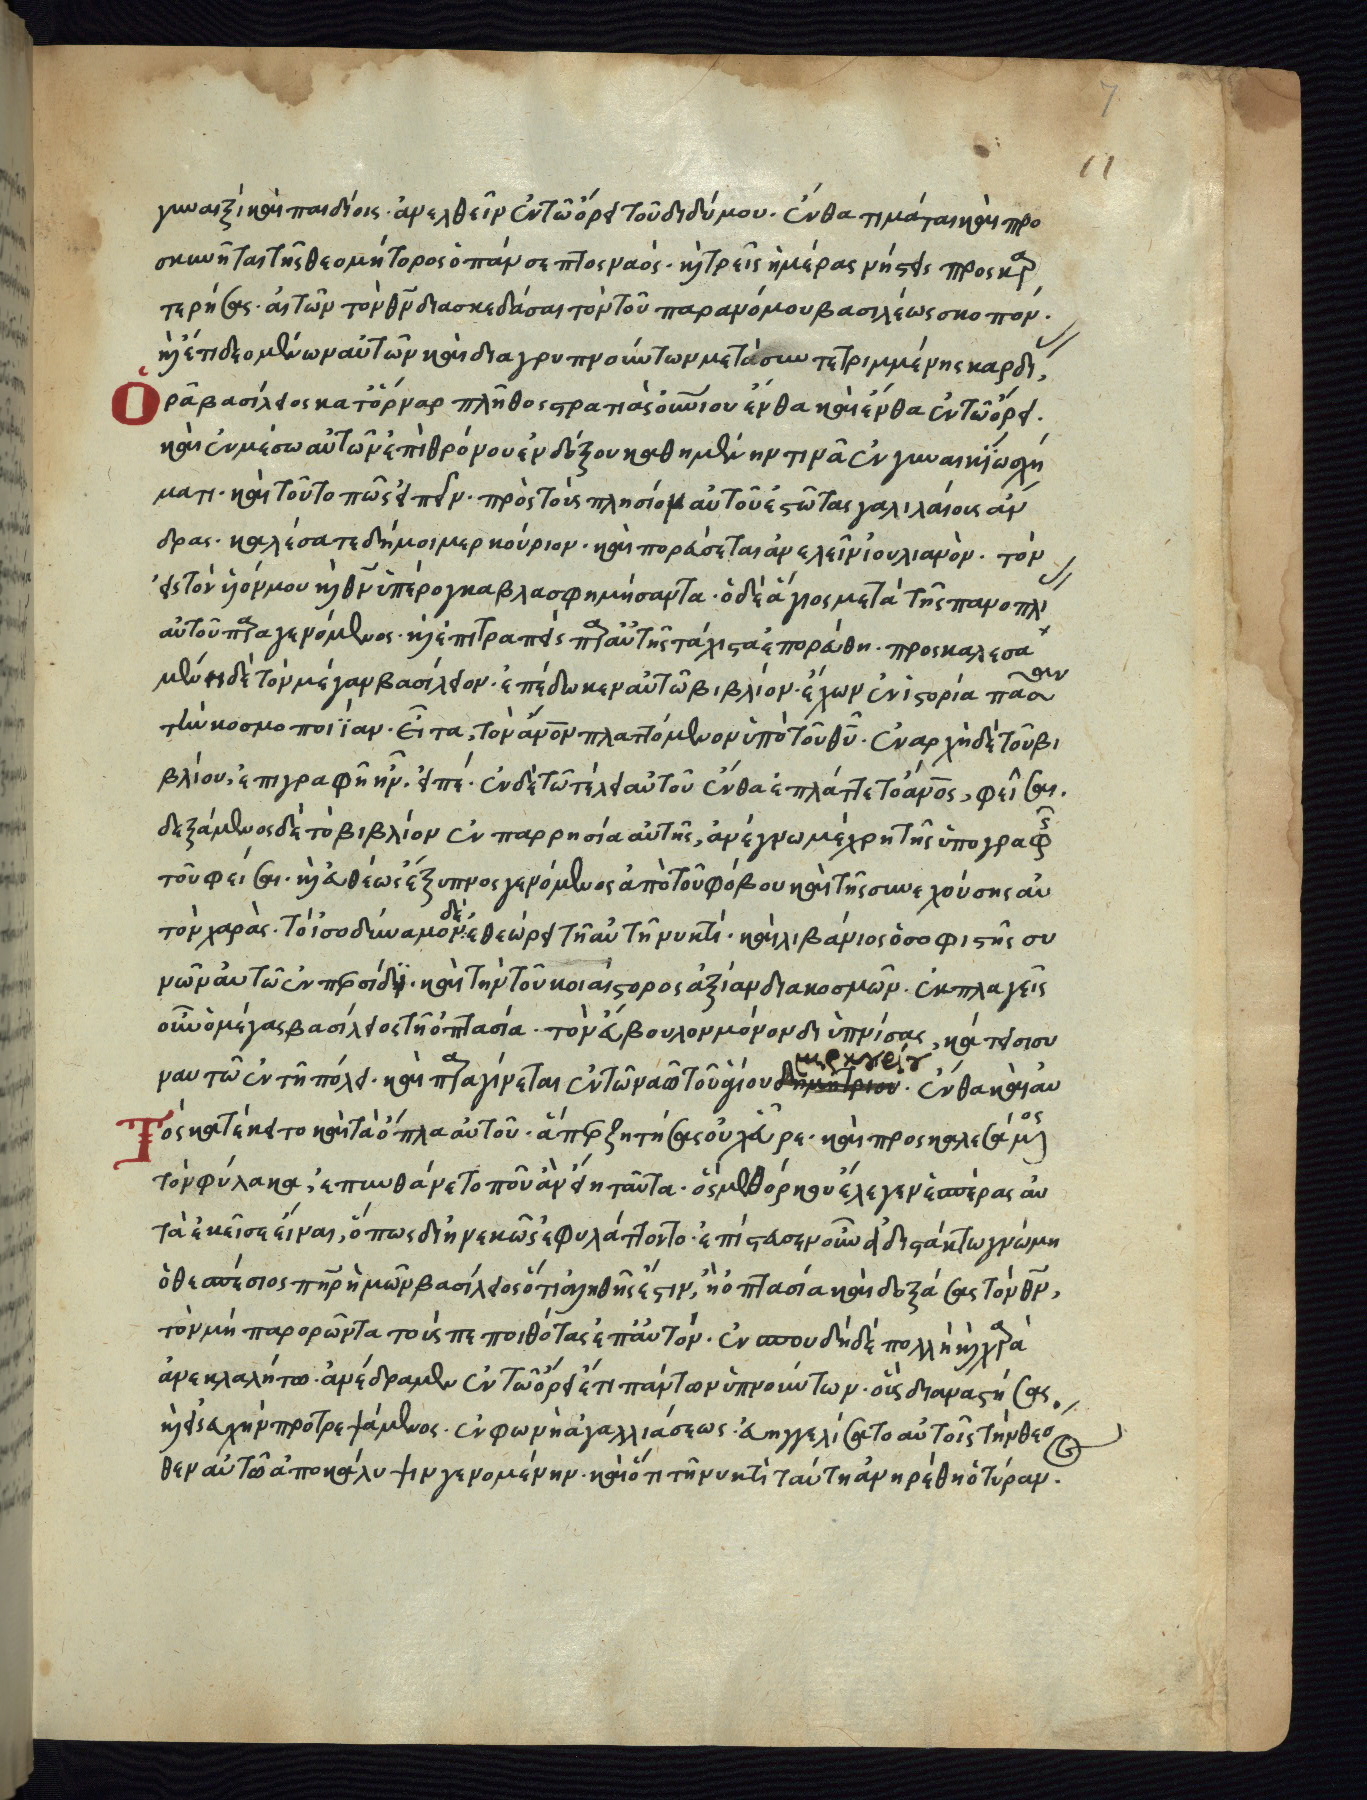 7
11
γυναιξὶ καὶ παιδίοις· ἀνελθεῖν ἐν τῶ ὄρει τοῦ διδύμου. ἔνθα τιμᾶται καὶ προ
σκυνῆται τῆς θεομήτορος ὁ πάνσεπτος ναός· κ τρεῖς ἡμέρας νήστεις προσκαρ
τερήσας· αἰτῶν τὸν θν διασκεδάσαι τὸν τοῦ παρανόμου βασιλέως σκοπόν.
κ ἔτι δεομένων αὐτῶν καὶ διαγρυπνούντων μετὰ συντετριμμένης καρδι,
Ὁρᾶ βασίλειος κατ ὄναρ πλῆθος στρατιὰς οὐνίου ἔνθα καὶ ἔνθα ἐν τῶ ὄρει.
καὶ ἐν μέσω αὐτῶν ἐπὶ θρόνου ἐνδόξου καθημένην τινᾶ ἐν γυναικίω σχή
ματι· καὶ τοῦτο πῶς εἰπεῖν· πρὸς τοὺς πλησίον αὐτοῦ ἑστῶτας γαλιλαίους ἄν
δρας· καλέσατε δή μοι μερκούριον· καὶ πορεύσεται ἀνελεῖν ἰουλιανὸν. τὸν
εἰς τὸν υἱόν μου κ θν ὑπέρογκα βλασφημήσαντα· ὁ δὲ ἅγιος μετὰ τῆς πανοπλι
αὐτοῦ παραγενόμενος· κ ἐπιτραπεὶς παρ αὐτῆς τάχιστα ἐπορεύθη· προσκαλεσα
μένη δὲ τὸν μέγαν βασίλειον· ἐπέδωκεν αὐτῶ βιβλίον· ἔχων ἐν ἱστορία πᾶσαν
τὴν κοσμοποιΐαν· Εἶτα, τὸν ἄνον πλαττόμενον ὑπὸ τοῦ θυ. ἐν αρχὴ δὲ τοῦ βι
βλίου, ἐπιγραφῆ ἦν· εἰπέ· ἐν δὲ τῶ τέλει αὐτοῦ ἔνθα ἐπλάττετο ἄνος, φεῖσαι.
δεξάμενος δὲ τὸ βιβλίον ἐν παρρησία αὐτῆς, ἀνέγνω μέχρη τῆς ὑπογραφῆς
τοῦ φεῖσαι· κ εὐθέως ἔξυπνος γενόμενος ἀπὸ τοῦ φόβου καὶ τῆς συνεχούσης αὐ
τὸν χαρὰς· τὸ ἰσοδύναμον δὲ ἐθεώρει τῆ αὐτῆ νυκτὶ· καὶ λιβάνιος ὁ σοφιστὴς συ
νῶν αὐτῶ ἐν περσίδι· καὶ τὴν τοῦ κοιαίστορος ἀξίαν διακοσμῶν. ἐκπλαγεῖς
οὖν ὁ μέγας βασίλειος τῆ ὀπτασία· τὸν εὔβουλον μόνον διϋπνίσας, κάτεισι συ
μερκουρίου
ν αυτῶ ἐν τῆ πόλει· καὶ παραγίνεται ἐν τῶ ναῶ τοῦ ἁγίου δημητρίου. ἔνθα καὶ αὐ
Τὸς κατέκειτο καὶ τὰ ὅπλα αὐτοῦ· ἅπερ ζητήσας οὐχ εὗρε· καὶ προσκαλεσάμενος
τὸν φύλακα, ἐπυνθάνετο ποῦ ἂν εἴη ταῦτα· ὃς μεθόρκου ἔλεγεν ἑσπέρας αὐ
τὰ ἐκεῖσε εἶναι, ὅπως διηνεκῶς ἐφυλάττοντο· ἐπίστευσεν οὖν ἀδιστάκτω γνώμη
ὁ θεσπέσιος πηρ ἡμῶν βασίλειος ὅτι ἀληθῆς ἐστιν, ἡ ὀπτασία καὶ δοξάσας τὸν θν,
τὸν μὴ παρορῶντα τοὺς πεποιθότας ἐπ αὐτόν· ἐν σπουδῆ δὲ πολλὴ κ χαρᾶ
ἀνεκλαλήτω· ἀνέδραμεν ἐν τῶ ὄρει ἔτι πάντων ὑπνούντων· οὓς διαναστήσας.
κ εἰς εὐχὴν προτρεψάμενος· ἐν φωνὴ ἀγαλλιάσεως· εὐηγγελίσατο αὐτοῖς τὴν θεο
θεν αὐτῶ ἀποκάλυψιν γενομένην· καὶ ὅτι τῆ νυκτὶ ταύτη ἀνηρέθη ὁ τύραν.